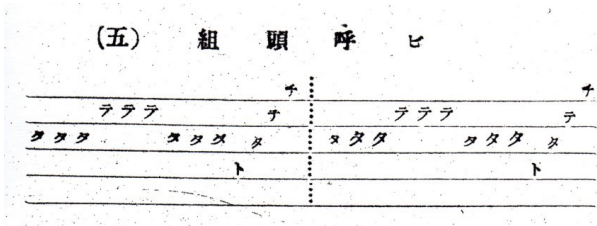 (五) 組頭呼ビ
チ チ
テテテ テ テテテ テ
タタタ タタタ タ タタタ タタタ タ
ト ト